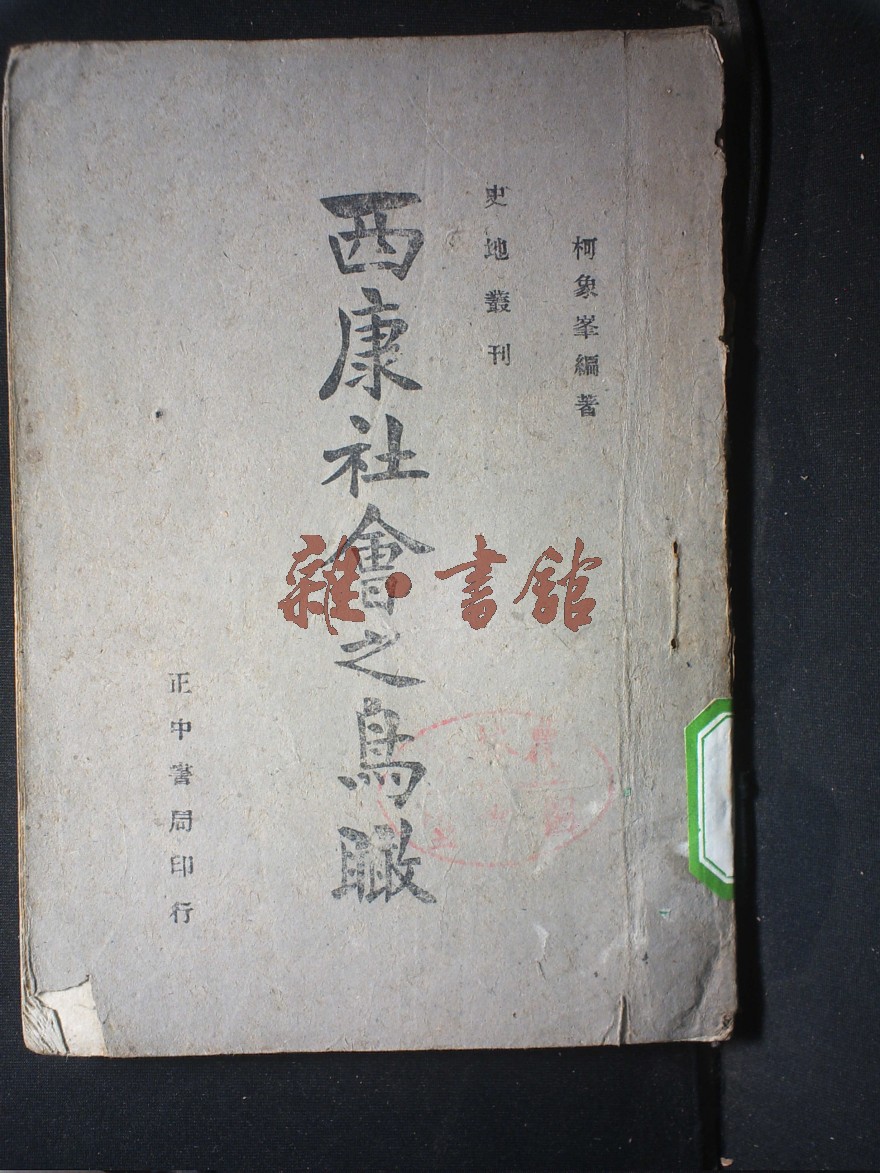 柯象峯編著
史地叢刊
西康社會之鳥瞰
正中書局印行
雜·書館